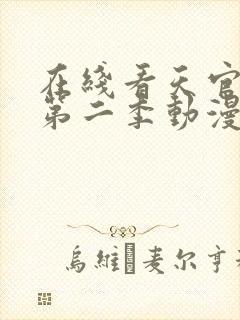 在綫看天官
第二季動漫
烏維麦尔亨